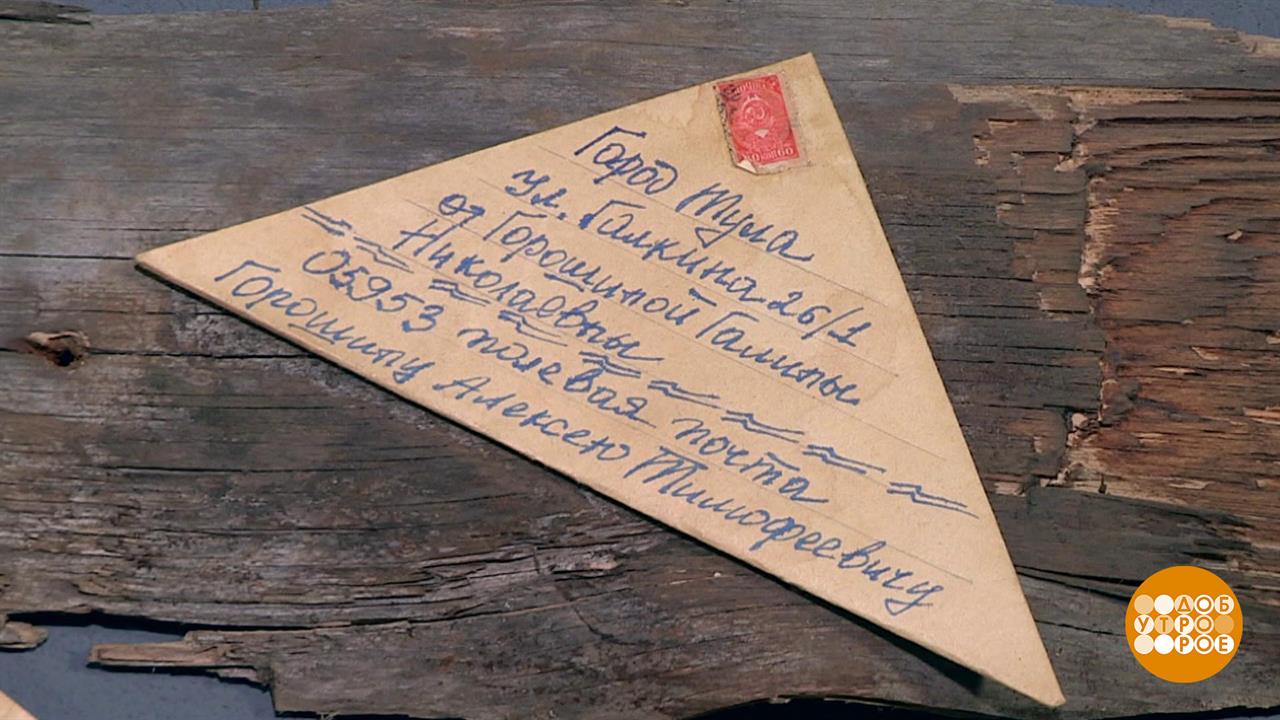 Город Тула
ул. Галкина 26/1
от Горошиной Галины
Николаевны
05953 полевая почта
Горошину Алексею Тимофеевичу
ДОБ
УТРО
РОЕ